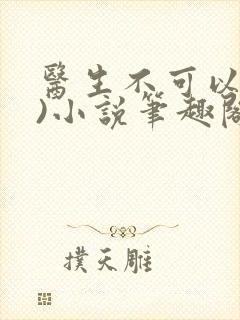 醫生不可以
)小說筆趣閣
撲天雕